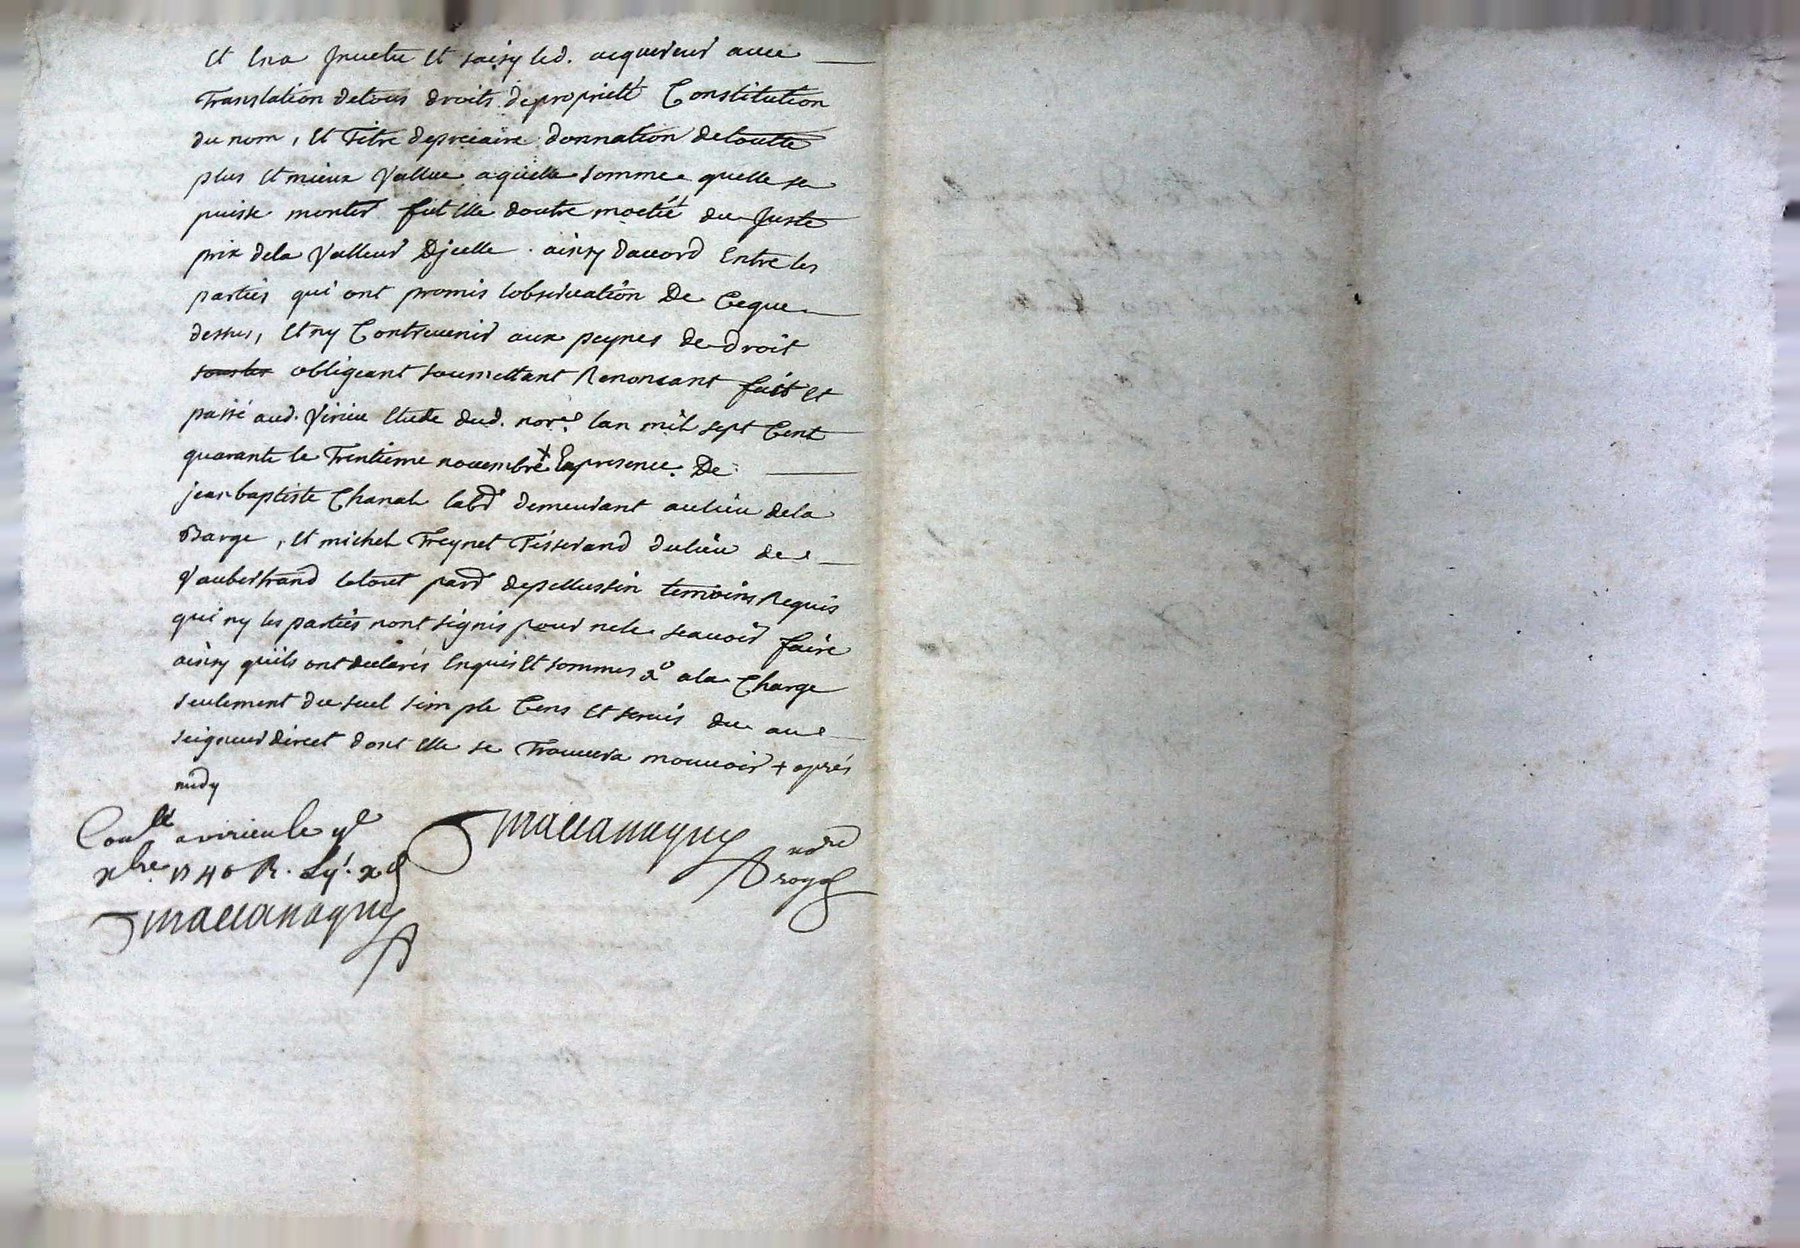 Et Ena Jnuetu Et saisy led. acquereur auec
Translation detous droits depropriett Constitution
du nom, Et Titre depreciaire donnation detoutte
plus Et mieux Vallue aquelle somme quelle se
puisse monter fut Elle doutre moctiét du Juste
prix dela Valleur Djcelle. ainsy daccord Entre les
parties qui ont promis lobseruation De Ceque
dessus, Et ny Contreuenir aux peynes de droit
obligeant soumettant Renoncant fait Et
passé aud. Virieu Etude dud. nore. lan mil sept Cent
quarante le Trentieme nouembre + En presence De
jean baptiste Chanal labr demeurant aulieu dela
Barge, Et michel Freynet Tisserand dulieu de
Vaubertrand letout parr depellussin temoins Requis
qui ny les parties nont signés pour nele scauoir faire
ainsy quils ont declarés Enquis Et sommés aº ala Charge
seulement du seul simple Cens Et seruis du au
seigneur direct dont Elle se Trouuera mouuoir + aprés
midy
Coullé a virieu le 9e
xbre 1740 R.